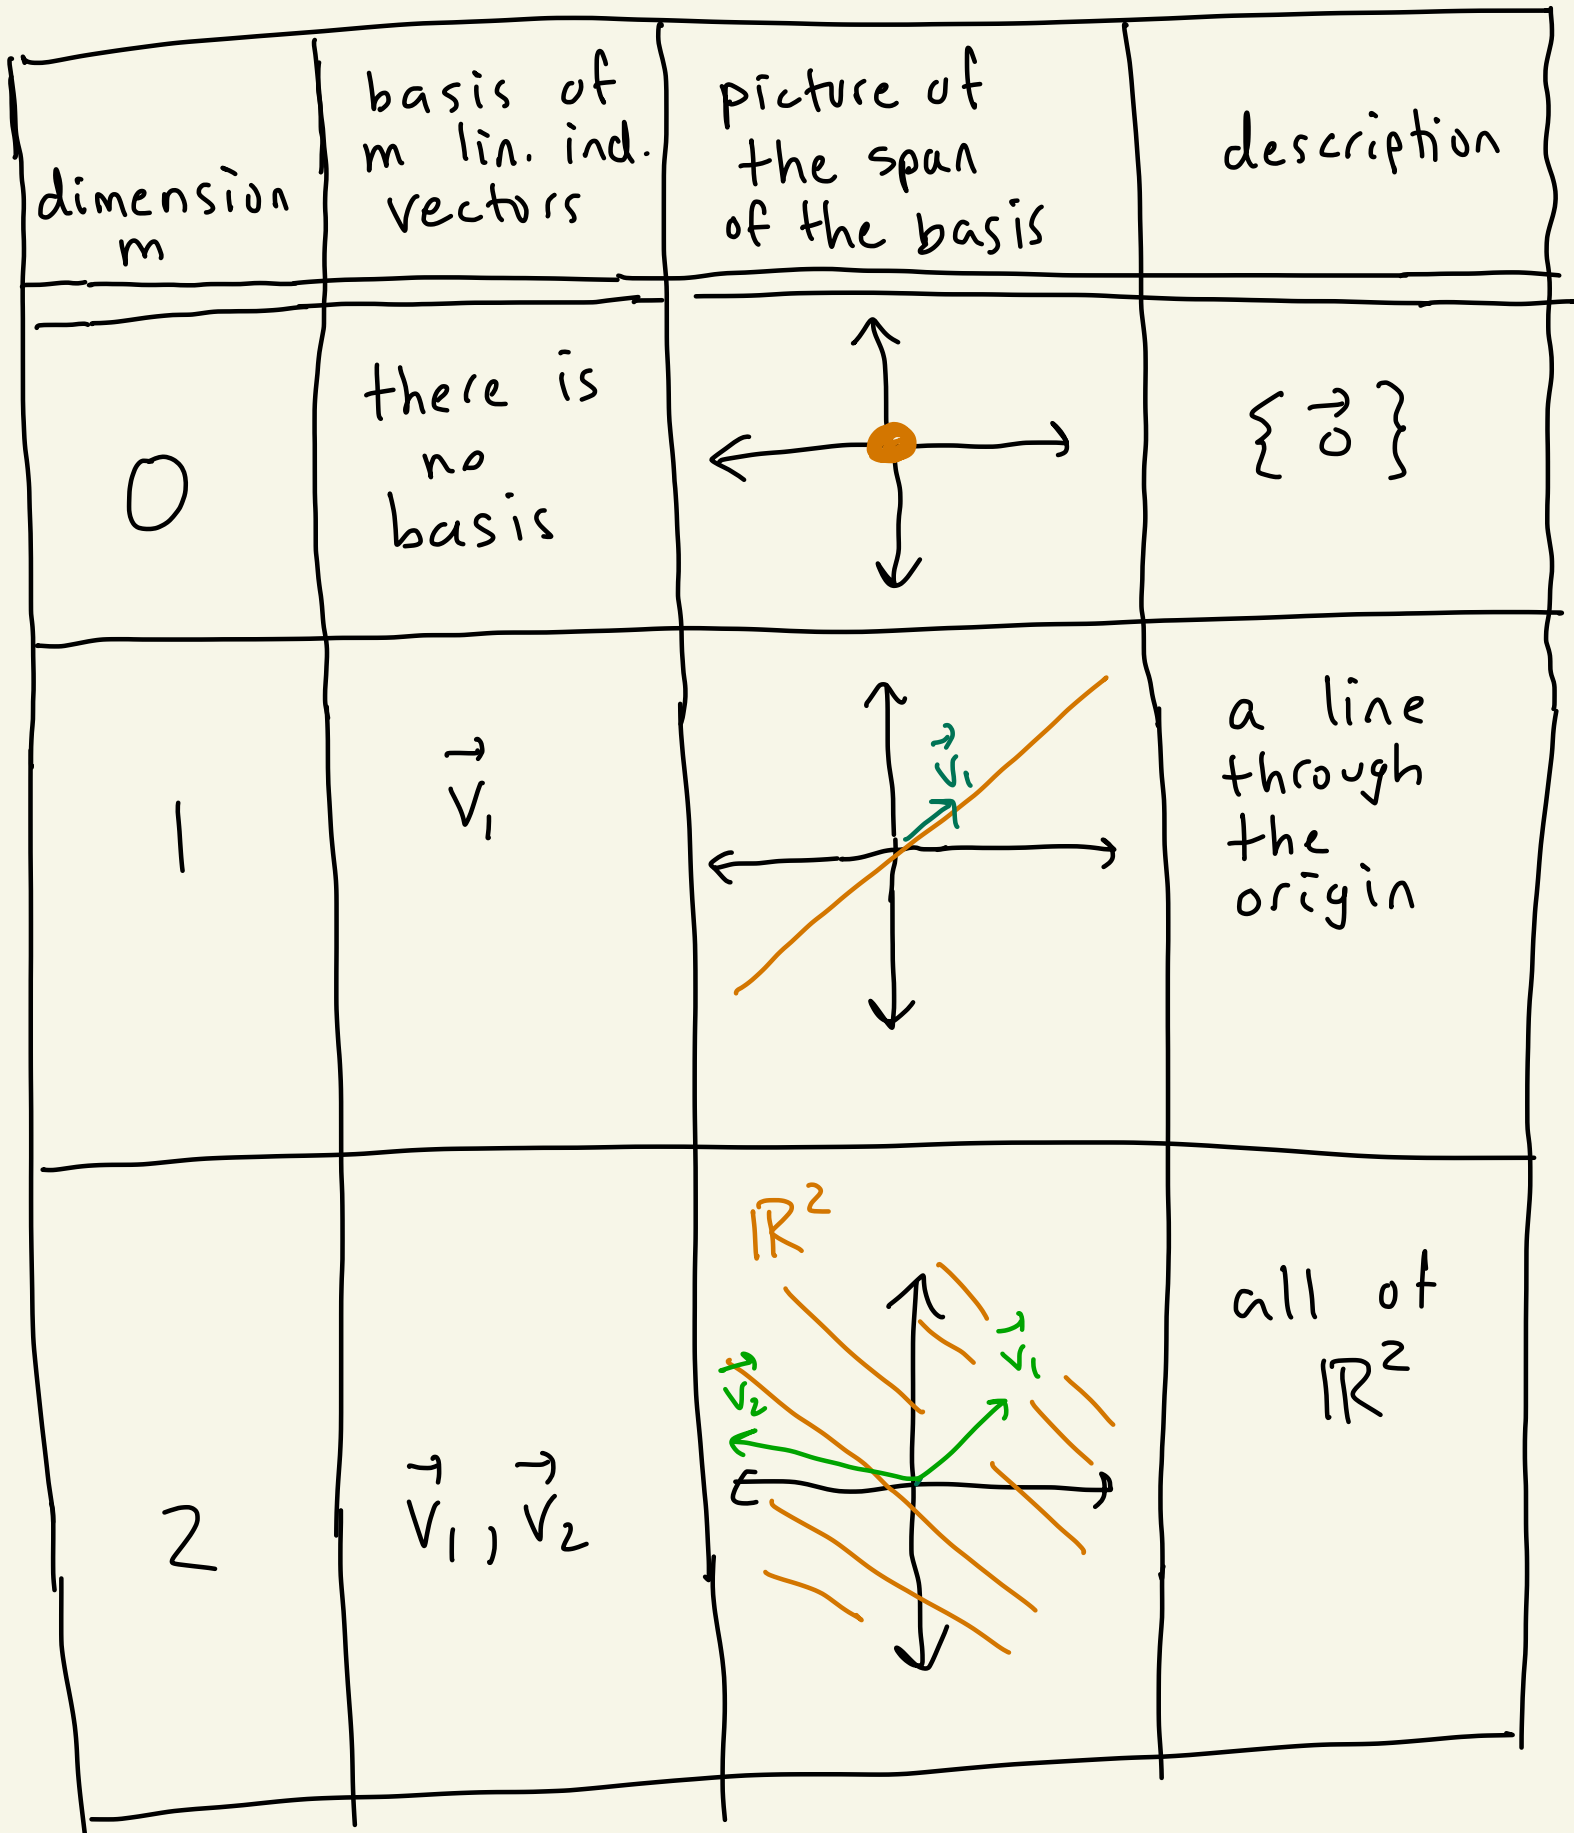 dimension
m
basis of
m lin. ind.
vectors
picture of
the span
of the basis
description
0
there is
no
basis
{ 0⃗ }
1
v⃗₁
v⃗₁
a line
through
the
origin
2
v⃗₁, v⃗₂
ℝ²
v⃗₁
v⃗₂
all of
ℝ²